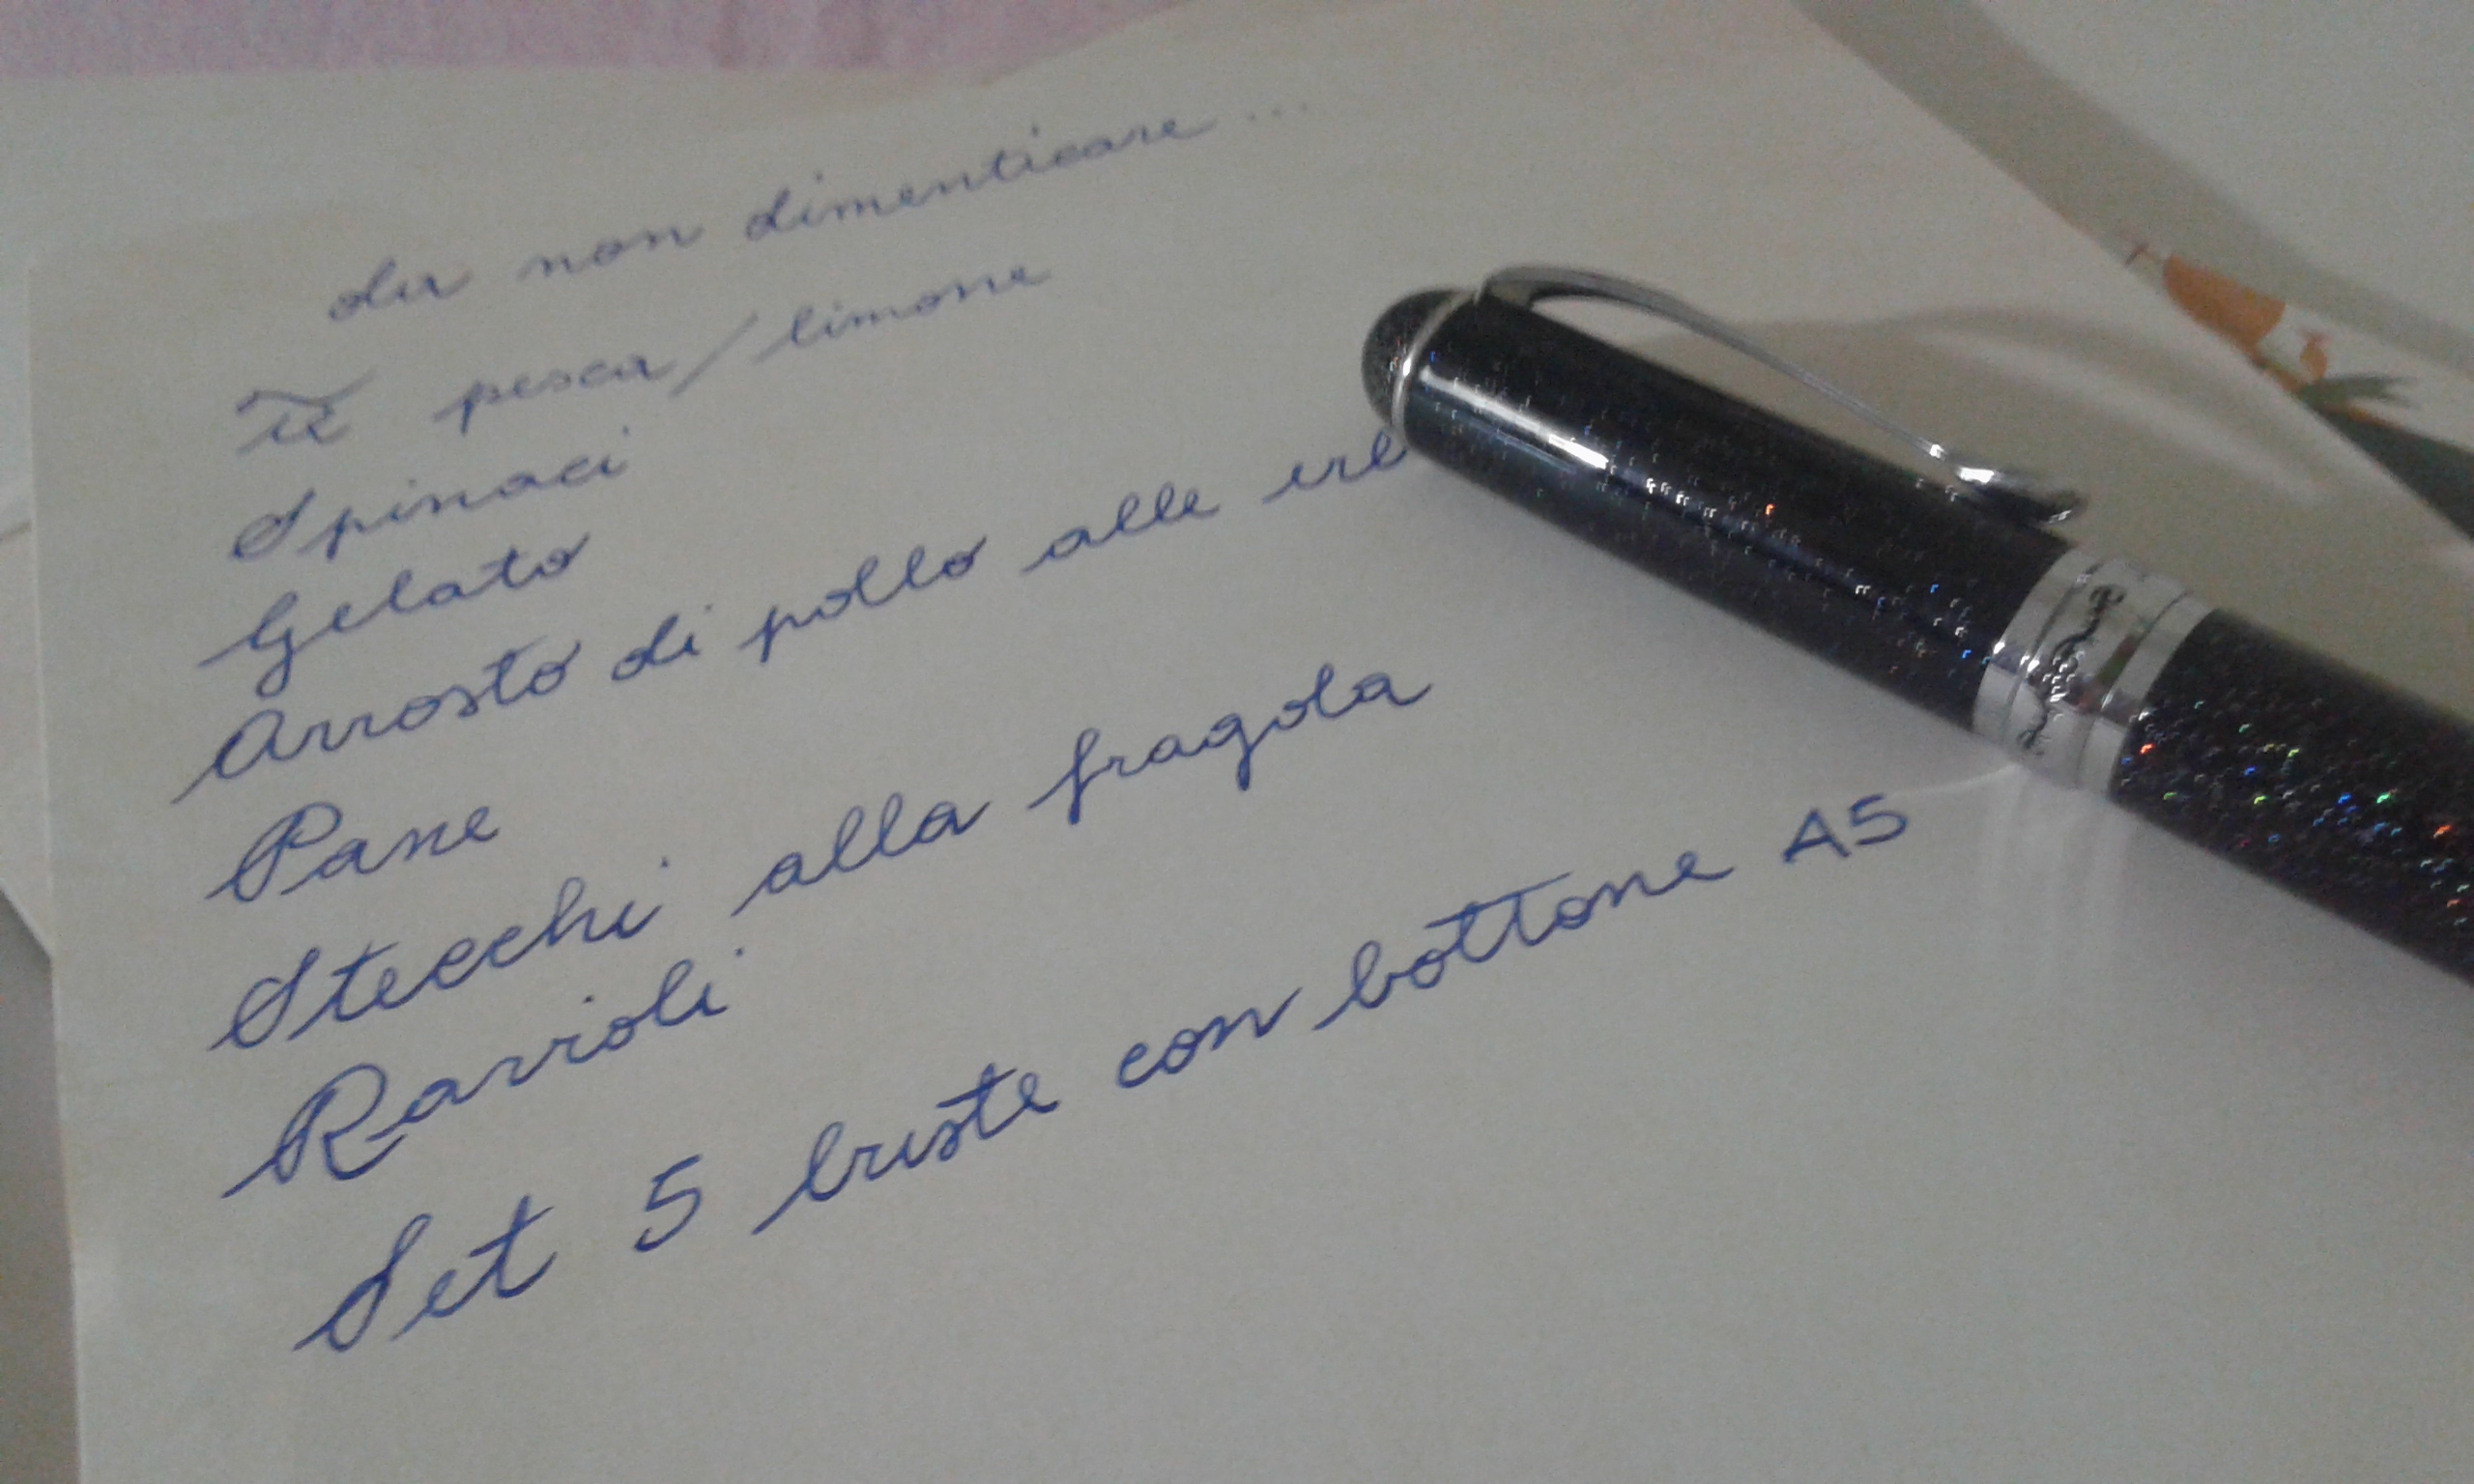 da non dimenticare ...
Tè pesca/limone
Spinaci
Gelato
Arrosto di pollo alle erb
Pane
Stecchi alla fragola
Ravioli
Set 5 buste con bottone A5